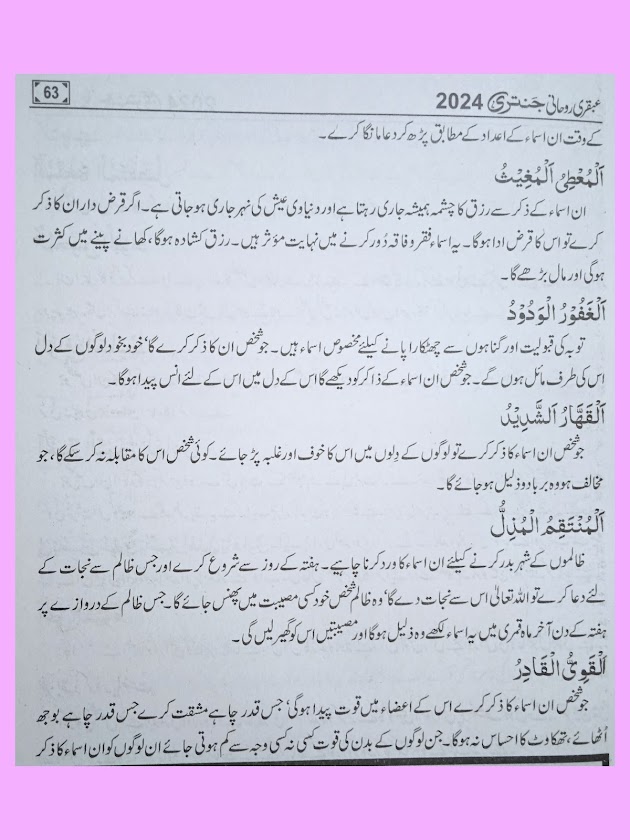 عبقری روحانی جنتری 2024
63
کے وقت ان اسماء کے اعداد کے مطابق پڑھ کر دعا مانگا کرے۔
اَلْمُعْطِیُ اَلْمُغِیْثُ
ان اسماء کے ذکر سے رزق کا چشمہ ہمیشہ جاری رہتا ہے اور دنیاوی عیش کی نہر جاری ہو جاتی ہے۔ اگر قرض دار ان کا ذکر
کرے تو اس کا قرض ادا ہوگا۔ یہ اسماء فقر و فاقہ دُور کرنے میں نہایت مؤثر ہیں۔ رزق کشادہ ہوگا، کھانے پینے میں کثرت
ہوگی اور مال بڑھے گا۔
اَلْغَفُوْرُ الْوَدُوْدُ
توبہ کی قبولیت اور گناہوں سے چھٹکارا پانے کیلئے مخصوص اسماء ہیں۔ جو شخص ان کا ذکر کرے گا‘ خود بخود لوگوں کے دل
اس کی طرف مائل ہوں گے۔ جو شخص ان اسماء کے ذاکر کو دیکھے گا اس کے دل میں اس کے لئے انس پیدا ہوگا۔
اَلْقَهَّارُ اَلشَّدِیْدُ
جو شخص ان اسماء کا ذکر کرے تو لوگوں کے دِلوں میں اس کا خوف اور غلبہ پڑ جائے۔ کوئی شخص اس کا مقابلہ نہ کر سکے گا، جو
مخالف ہو وہ برباد و ذلیل ہو جائے گا۔
اَلْمُنْتَقِمُ الْمُذِلُّ
ظالموں کے شہر بدر کرنے کیلئے ان اسماء کا ورد کرنا چاہیے۔ ہفتہ کے روز سے شروع کرے اور جس ظالم سے نجات کے
لئے دعا کرے تو اللہ تعالیٰ اس سے نجات دے گا‘ وہ ظالم شخص خود کسی مصیبت میں پھنس جائے گا۔ جس ظالم کے دروازے پر
ہفتہ کے دن آخر ماہ قمری میں یہ اسماء لکھے وہ ذلیل ہوگا اور مصیبتیں اس کو گھیر لیں گی۔
اَلْقَوِیُّ الْقَادِرُ
جو شخص ان اسماء کا ذکر کرے اس کے اعضاء میں قوت پیدا ہوگی‘ جس قدر چاہے مشقت کرے جس قدر چاہے بوجھ
اُٹھائے، تھکاوٹ کا احساس نہ ہوگا۔ جن لوگوں کے بدن کی قوت کسی نہ کسی وجہ سے کم ہوتی جائے ان لوگوں کو ان اسماء کا ذکر